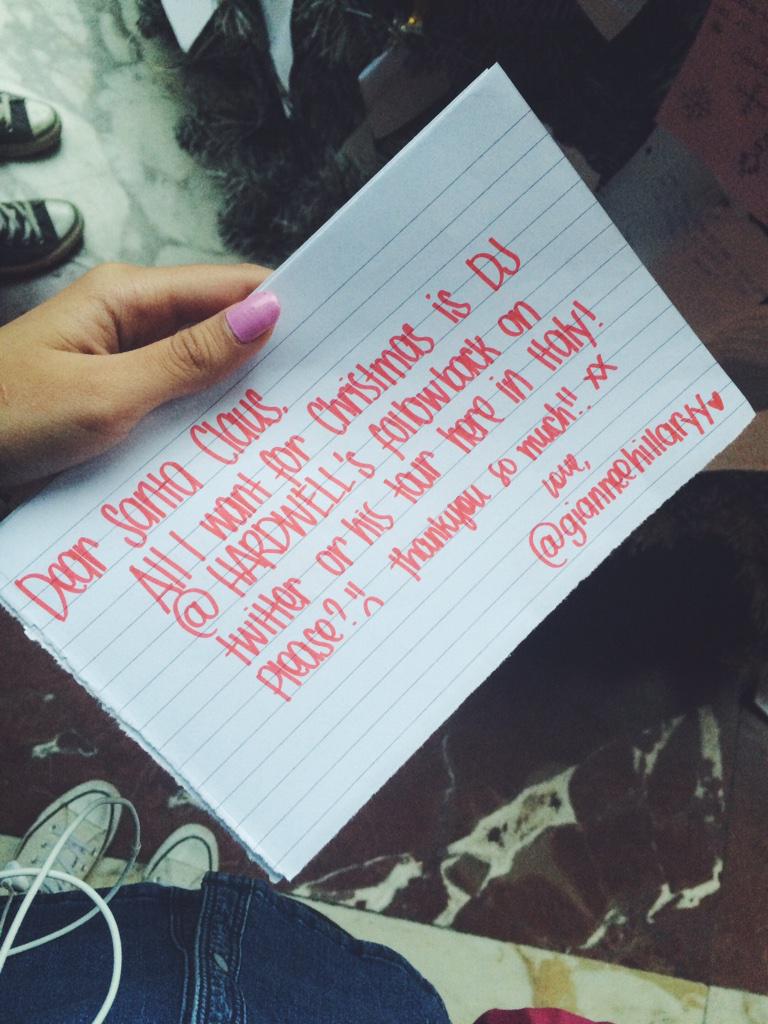 Dear Santa Claus,
All I want for Christmas is DJ
@HARDWELL's followback on
twitter or his tour here in Italy!
please?!! :( thankyou so much!! xx
love,
@gianneehillaryy♥